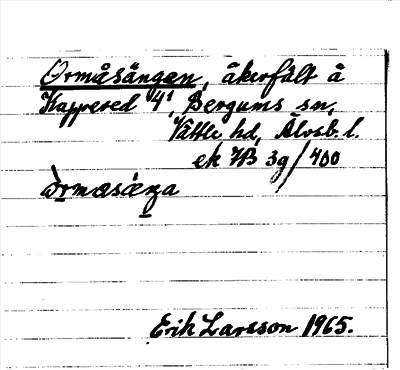 Ormåsängen, åkerfält å
Kappered 4¹, Bergums sn,
Vättle hd, Älvsb. l.
ek 7B 3g/400
òrmasäŋa
Erik Larsson 1965.